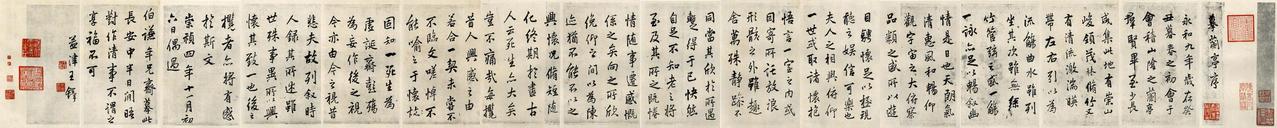 摹蘭亭序
永和九年歲在癸
丑暮春之初會于
會稽山陰之蘭亭
羣賢畢至少長
咸集此地有崇山
峻領茂林脩竹又
有清流激湍暎
帶左右引以為
流觴曲水雖列
坐其次雖無絲
竹管絃之盛一觴
一詠亦足以暢叙幽
情是日也天朗氣
清惠風和暢仰
觀宇宙之大俯察
品類之盛所以遊
目騁懷足以極視
聽之娛信可樂也
夫人之相與俯仰
一世或取諸懷抱
悟言一室之內或
因寄所託放浪
形骸之外雖趣
舍萬殊靜躁不
同當其欣於所遇
蹔得于己怏然
自足不知老之將
至及其所之既惓
情隨事遷感慨
係之矣向之所欣
俛仰之間以為陳
迹猶不能不以之
興懷況脩短隨
化終期於盡古
人云死生亦大矣
豈不痛哉每攬
昔人興感之由
若合一契未嘗不
不臨文嗟悼不
能喻之於懷
固知一死生為
虛誕齊彭殤
為妄作後之視
今亦由今之視昔
悲夫故列敘時
人錄其所述雖
世殊事異所以興
懷其致一也後之
攬者亦將有感
於斯文
崇禎四年十一月初
六日偶過
伯謙年兄齋摹此
長安中半日間暇
對作清事不謂之
寡福不可
孟津王鐸